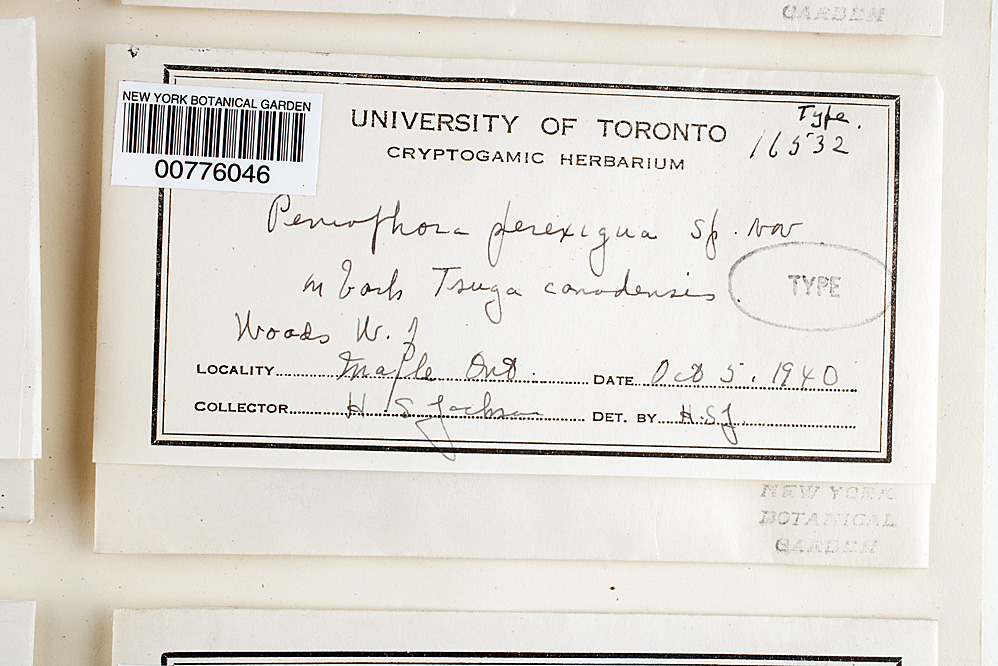 GARDEN
NEW YORK BOTANICAL GARDEN
00776046
UNIVERSITY OF TORONTO
CRYPTOGAMIC HERBARIUM
Type.
16532
Peniophora perexigua sp. nov
on bark Tsuga canadensis.
TYPE
Woods W. of
LOCALITY Maple Ont. DATE Oct 5, 1940
COLLECTOR H. S. Jackson DET. BY H.S.J.
NEW YORK
BOTANICAL
GARDEN